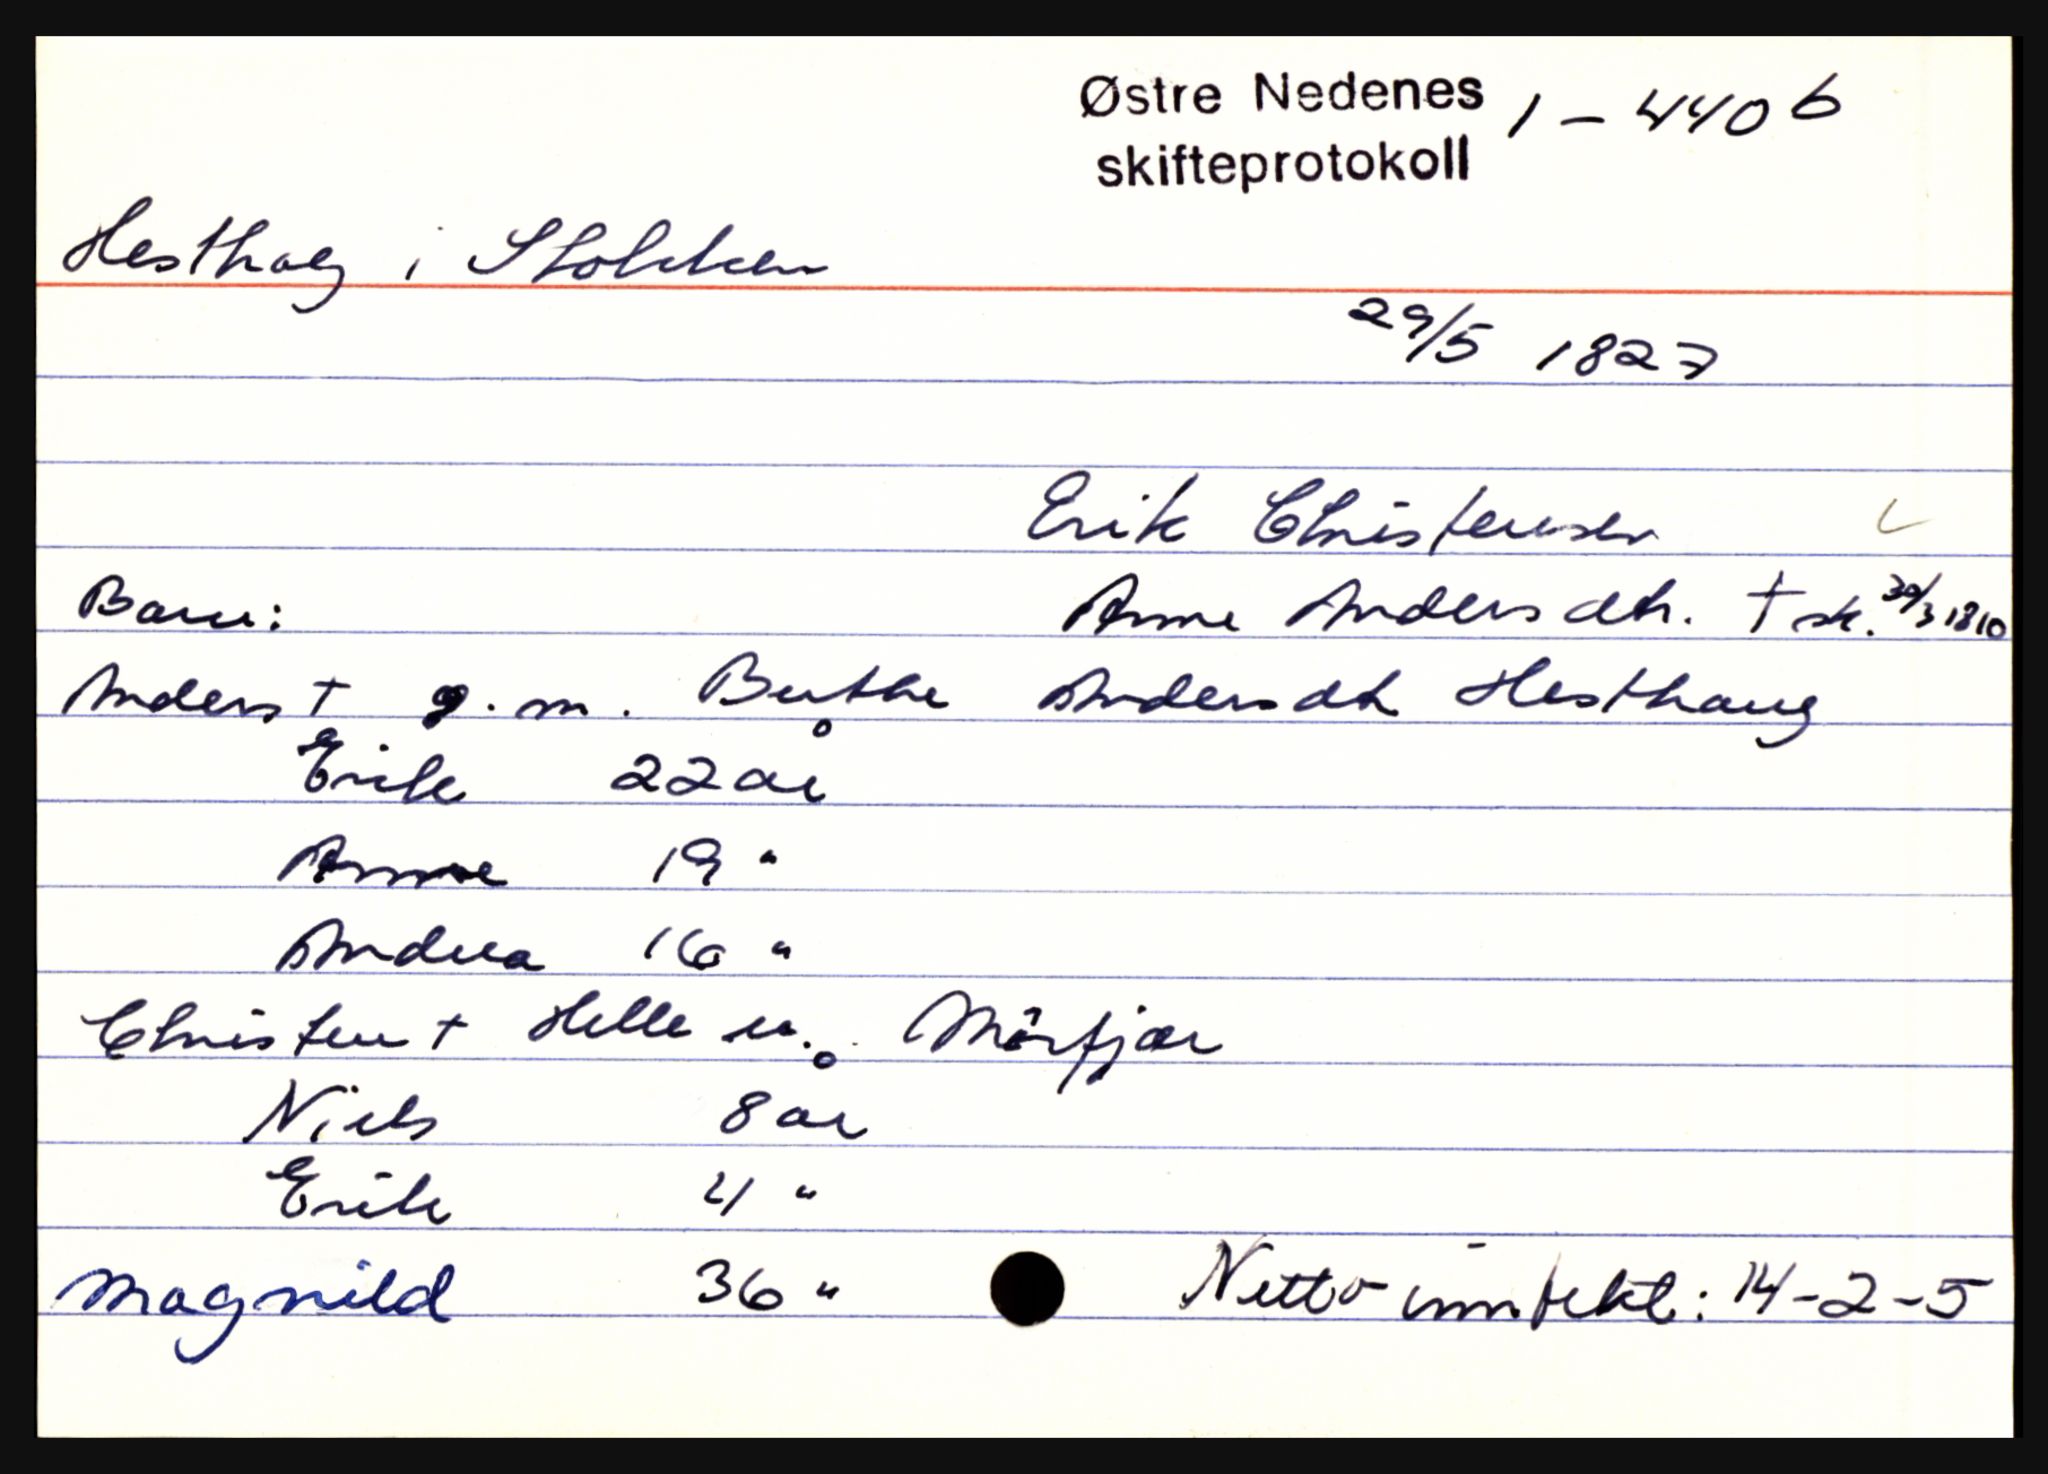 Østre Nedenes 1 - 440 b
skifteprotokoll
Hesthag i Stokken
29/5 1827
Erik Christensen
Barn: Anne Andersdtr. † sk. 30/3 1810
Anders † g. m. Berthe Andersdtr Hesthaug
Erik 22 år
Anne 19 "
Andrea 16 "
Christen † Helle m. Mörfjær
Niels 8 år
Erik 4 "
Magnild 36 "
Netto inntekt: 14-2-5